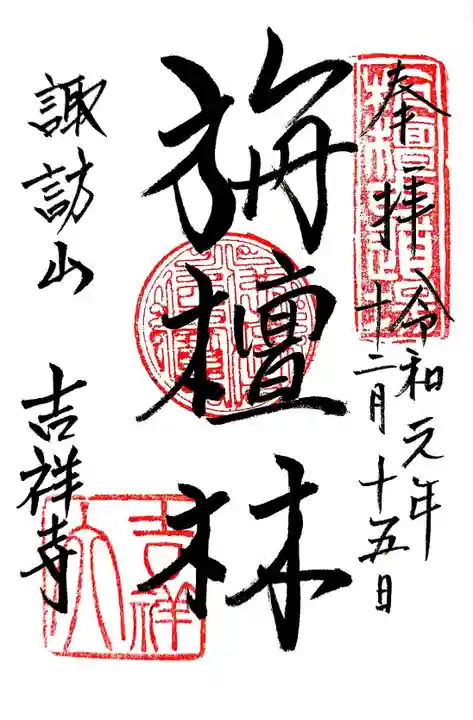 奉拝
令和元年
十二月十五日
旃檀林
諏訪山 吉祥寺